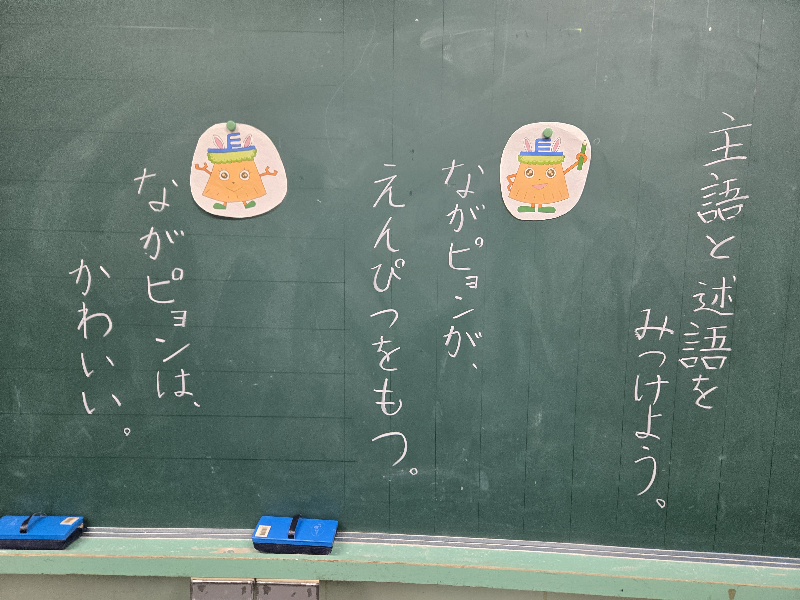 主語と述語を
みつけよう。
ながピョンが、
えんぴつをもつ。
ながピョンは、
かわいい。